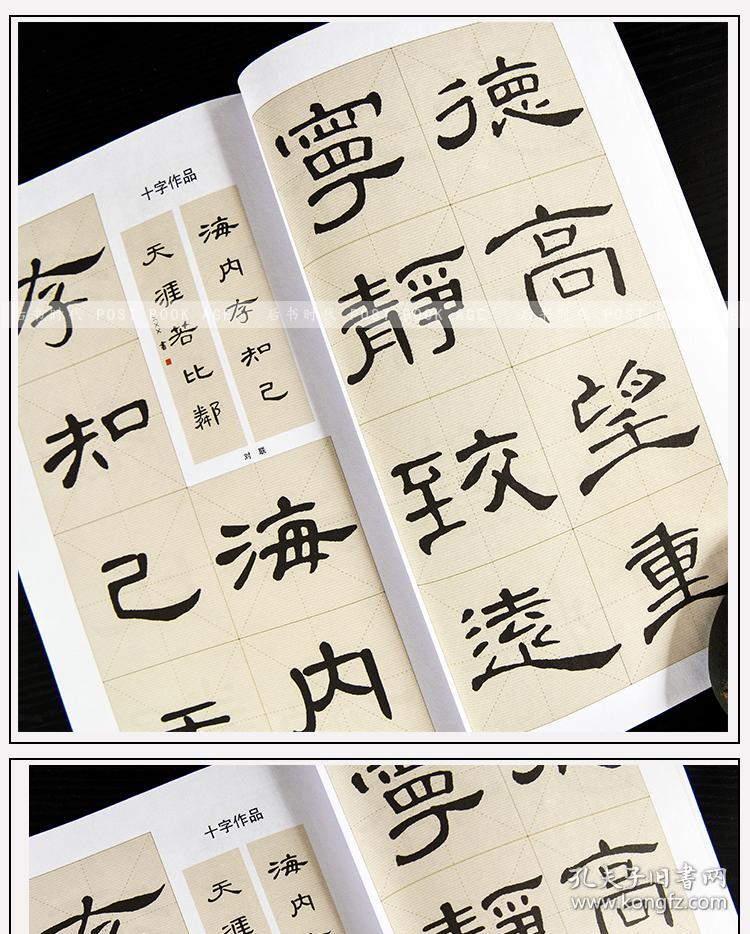 十字作品
海内存知己
天涯若比鄰
××书
对联
海内
存知己
天
德高望重
寧靜致遠
后书时代 POST BOOK AGE 后书时代 POST BOOK AGE 后书时代
十字作品
海内
天涯
存
高
寧靜
孔夫子旧书网
www.kongfz.com